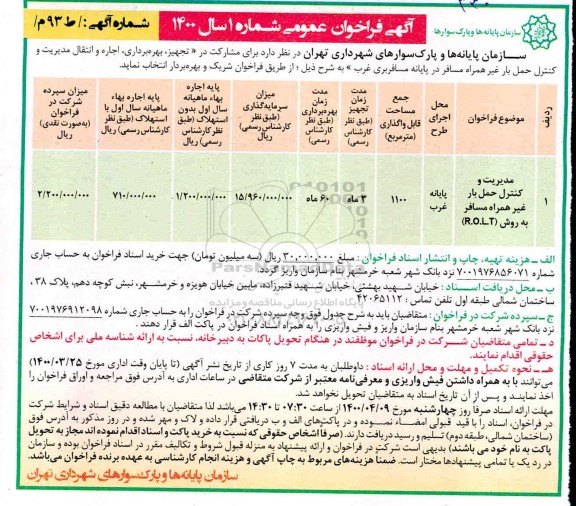 سازمان پایانه‌ها و پارک‌سوارها
آگهی فراخوان عمومی شماره ۱ سال ۱۴۰۰
شماره آگهی: / ط ۹۳ م/
سازمان پایانه‌ها و پارک‌سوارهای شهرداری تهران در نظر دارد برای مشارکت در « تجهیز، بهره‌برداری، اجاره و انتقال مدیریت و
کنترل حمل بار غیر همراه مسافر در پایانه مسافربری غرب » به شرح ذیل ؛ از طریق فراخوان شریک و بهره‌بردار انتخاب نماید.
ردیف
موضوع فراخوان
محل اجرای طرح
جمع مساحت قابل واگذاری (مترمربع)
مدت زمان تجهیز (طبق نظر کارشناس رسمی)
مدت زمان بهره‌برداری (طبق نظر کارشناس رسمی)
میزان سرمایه‌گذاری (طبق نظر کارشناس رسمی) ریال
پایه اجاره بهاء ماهیانه سال اول بدون استهلاک (طبق نظر کارشناس رسمی) ریال
پایه اجاره بهاء ماهیانه سال اول با استهلاک (طبق نظر کارشناس رسمی) ریال
میزان سپرده شرکت در فراخوان (به‌صورت نقدی) ریال
۱
مدیریت و کنترل حمل بار غیر همراه مسافر به روش (R.O.L.T)
پایانه غرب
۱۱۰۰
۳ ماه
۶۰ ماه
۱۵/۹۶۰/۰۰۰/۰۰۰
۱/۲۰۰/۰۰۰/۰۰۰
۷۱۰/۰۰۰/۰۰۰
۲/۲۰۰/۰۰۰/۰۰۰
الف ـ هزینه تهیه، چاپ و انتشار اسناد فراخوان : مبلغ ۳۰,۰۰۰,۰۰۰ ریال (سه میلیون تومان) جهت خرید اسناد فراخوان به حساب جاری
شماره ۷۰۰۱۹۷۶۸۵۶۰۷۱ نزد بانک شهر شعبه خرمشهر بنام سازمان واریز گردد.
ب ـ محل دریافت اسناد : خیابان شهید بهشتی، خیابان شهید قنبرزاده، مابین خیابان هویزه و خرمشهر، نبش کوچه دهم، پلاک ۳۸،
ساختمان شمالی طبقه اول تلفن تماس : ۴۲۰۶۵۱۱۲
ج ـ سپرده شرکت در فراخوان : متقاضیان باید به شرح جدول فوق وجه سپرده شرکت در فراخوان را به حساب جاری شماره ۷۰۰۱۹۷۶۹۱۲۰۹۸
نزد بانک شهر شعبه خرمشهر بنام سازمان واریز و فیش واریزی را به همراه اسناد فراخوان در پاکت الف قرار دهند .
د ـ تمامی متقاضیان شرکت در فراخوان موظفند در هنگام تحویل پاکات به دبیرخانه، نسبت به ارائه شناسه ملی برای اشخاص
حقوقی اقدام نمایند.
هـ ـ نحوه تکمیل و مهلت و محل ارائه اسناد : داوطلبان به مدت ۷ روز کاری از تاریخ نشر آگهی (تا پایان وقت اداری مورخ ۱۴۰۰/۰۳/۲۵)
می‌توانند با به همراه داشتن فیش واریزی و معرفی‌نامه معتبر از شرکت متقاضی در ساعات اداری به آدرس فوق مراجعه و اوراق فراخوان را
اخذ نمایند و پس از آن تاریخ اسناد به متقاضیان تحویل نخواهد شد.
مهلت ارائه اسناد صرفا روز چهارشنبه مورخ ۱۴۰۰/۰۴/۰۹ از ساعت ۰۷:۳۰ تا ۱۴:۳۰ می‌باشد لذا متقاضیان با مطالعه دقیق اسناد و شرایط شرکت
در فراخوان، اسناد را با قید قبولی امضاء نموده و در پاکت‌های الف و ب دریافتی قرار داده و لاک و مهر شده و در روز مذکور به آدرس فوق
(ساختمان شمالی، طبقه دوم) تسلیم و رسید دریافت دارند. (صرفا اشخاص حقوقی که نسبت به خرید پاکت و اسناد اقدام نموده اند مجاز به تحویل
پاکت به نام خود می باشند) بدیهی است شرکت در فراخوان و ارائه پیشنهاد به منزله قبول شروط و تکالیف مقرر در اسناد فراخوان بوده و سازمان
در رد یک یا تمامی پیشنهادها مختار است. ضمنا هزینه‌های مربوط به چاپ آگهی و هزینه انجام کارشناسی به عهده برنده فراخوان می‌باشد.
سازمان پایانه‌ها و پارک‌سوارهای شهرداری تهران